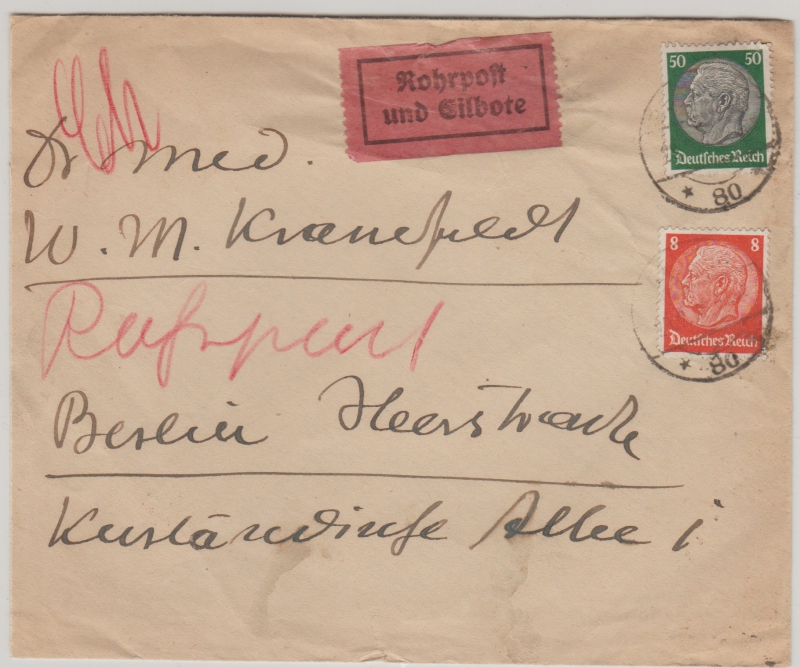 Rohrpost
und Eilbote
50 50
Deutsches Reich
80
Dr med.
W. M. Kranefeldt
8 8
Deutsches Reich
80
Rohrpost
Berlin Heerstraße
Kurländische Allee 1